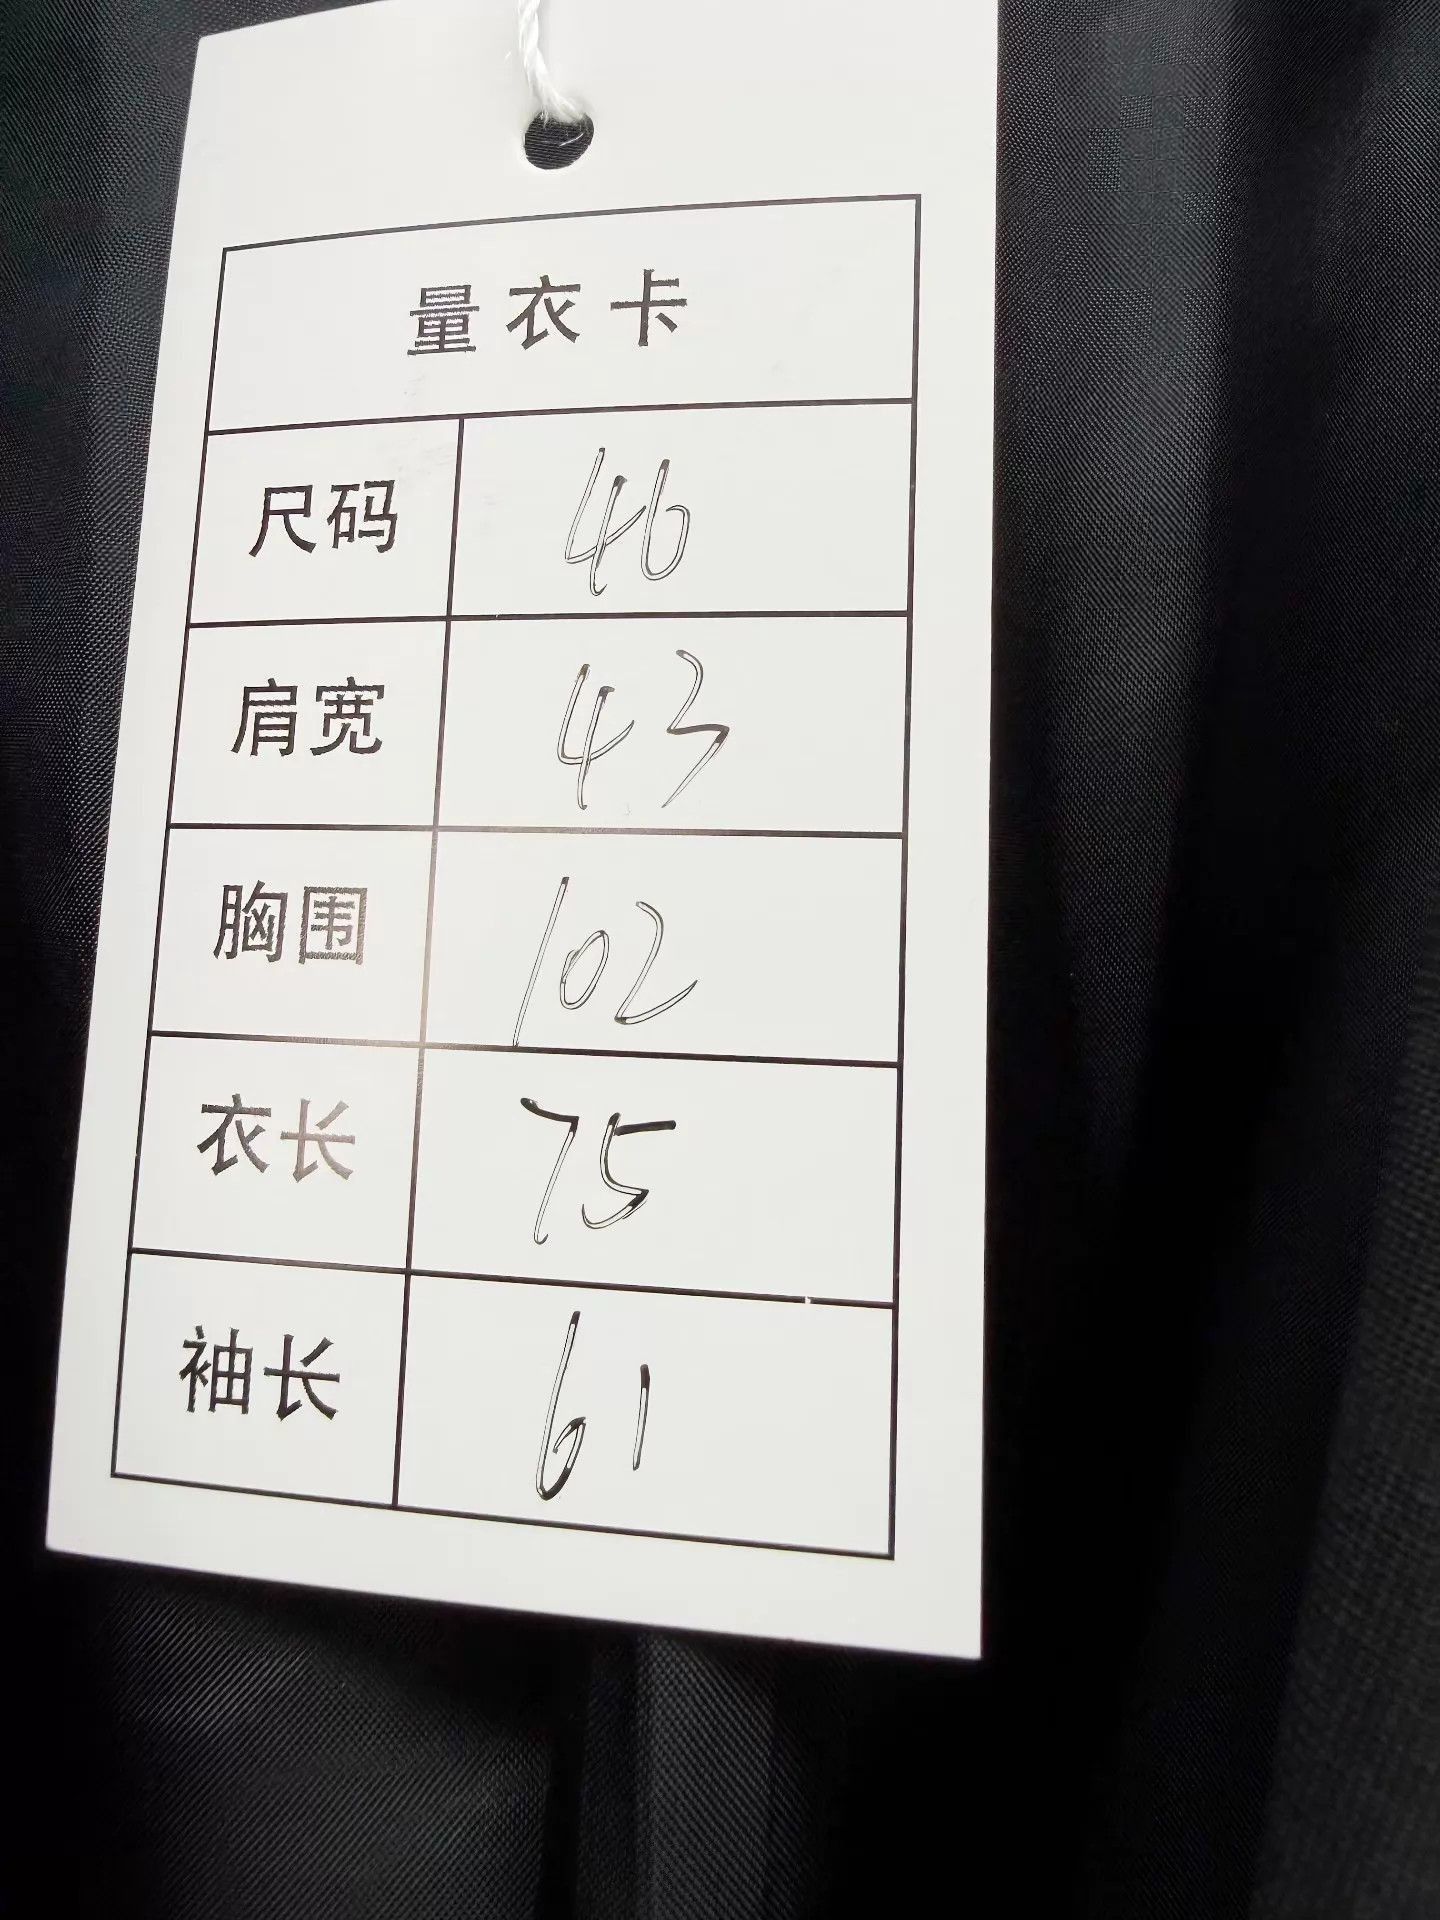 量衣卡
尺码 46
肩宽 43
胸围 102
衣长 75
袖长 61